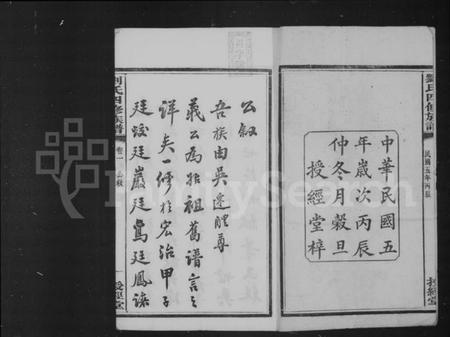 劉氏四修族譜
民國五年丙辰
授經堂
中華民國五
年歲次丙辰
仲冬月穀旦
授經堂梓
公叙
吾族由吳遷醴尊
義公為始祖舊譜言之
詳矣一修於宏治甲子
廷 廷巖廷鸞廷鳳諸
劉氏四修族譜
卷一
授經堂
FamilySearch